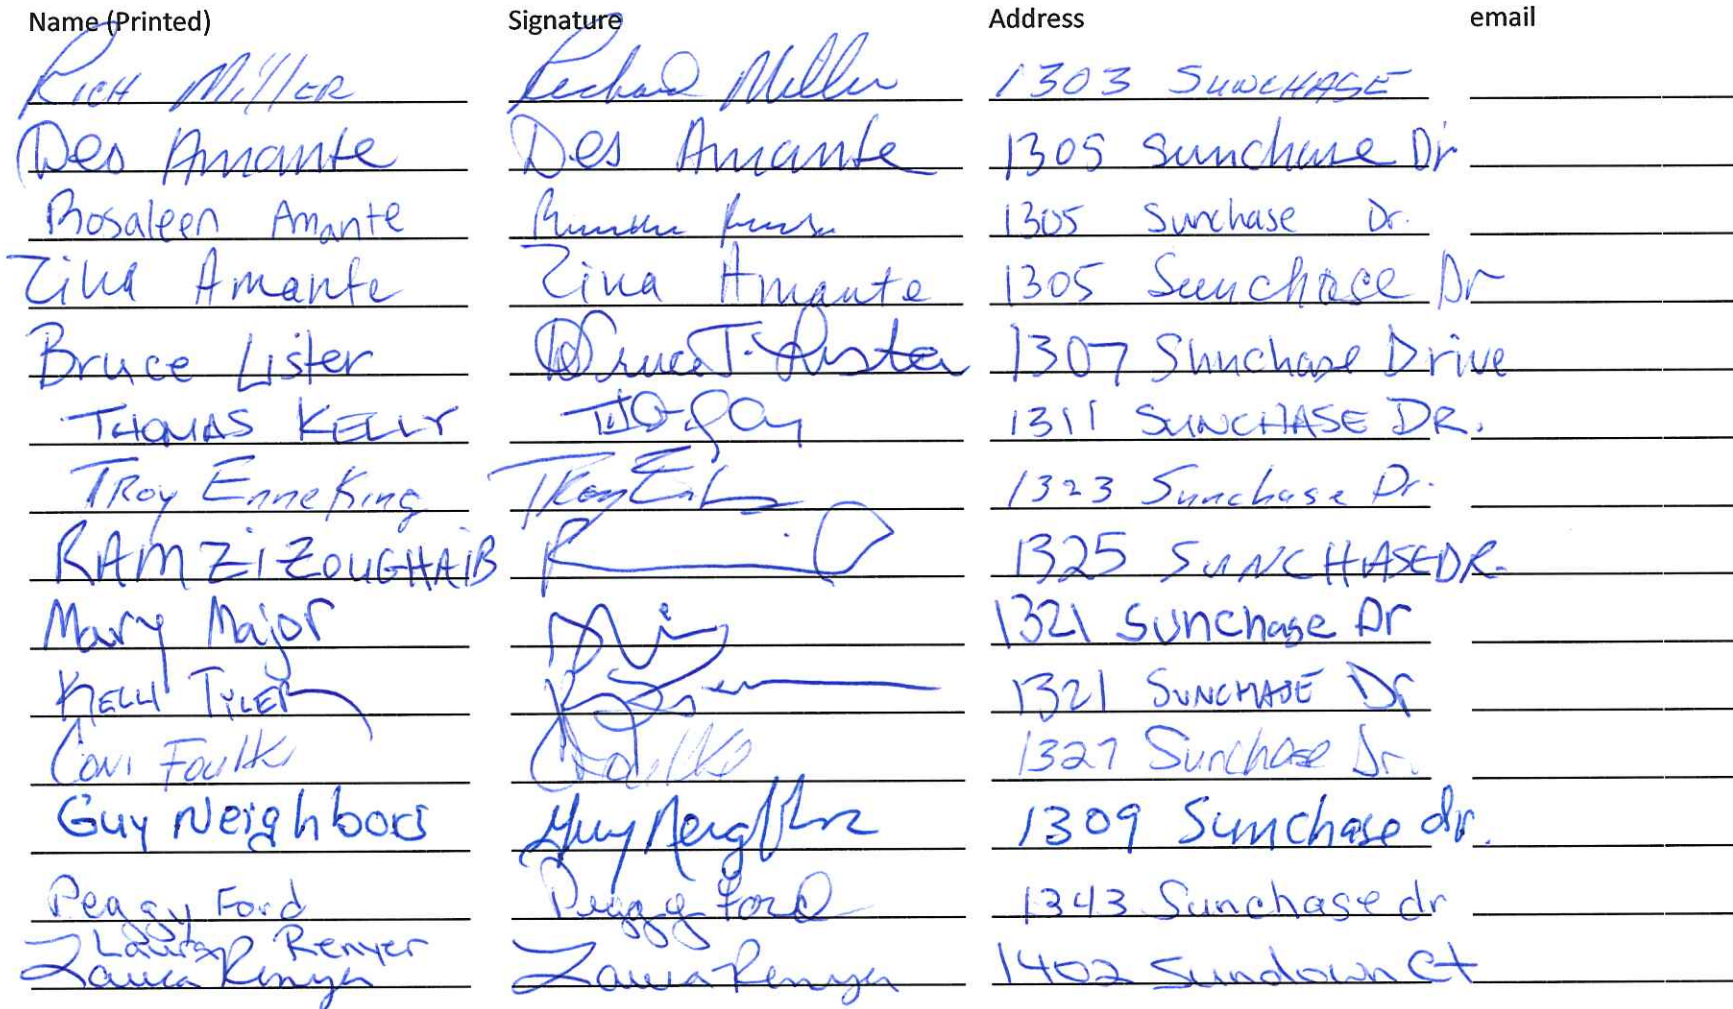 Name (Printed) Signature Address email
Rich Miller Richard Miller 1303 Sunchase
Des Amante Des Amante 1305 Sunchase Dr
Rosaleen Amante 1305 Sunchase Dr.
Zina Amante Zina Amante 1305 Sunchase Dr
Bruce Lister Bruce T. Lister 1307 Sunchase Drive
THOMAS KELLY 1311 SUNCHASE DR.
Troy Enneking 1323 Sunchase Dr.
RAMZI ZOUGHAIB 1325 SUNCHASE DR.
Mary Major 1321 Sunchase Dr
Kelli Tyler 1321 SUNCHASE Dr
Foulks 1327 Sunchase Dr.
Guy Neighbors Guy Neighbors 1309 Sunchase dr.
Peggy Ford Peggy Ford 1343 Sunchase dr
Laura Renyer
Laura Renyer Laura Renyer 1402 Sundown Ct